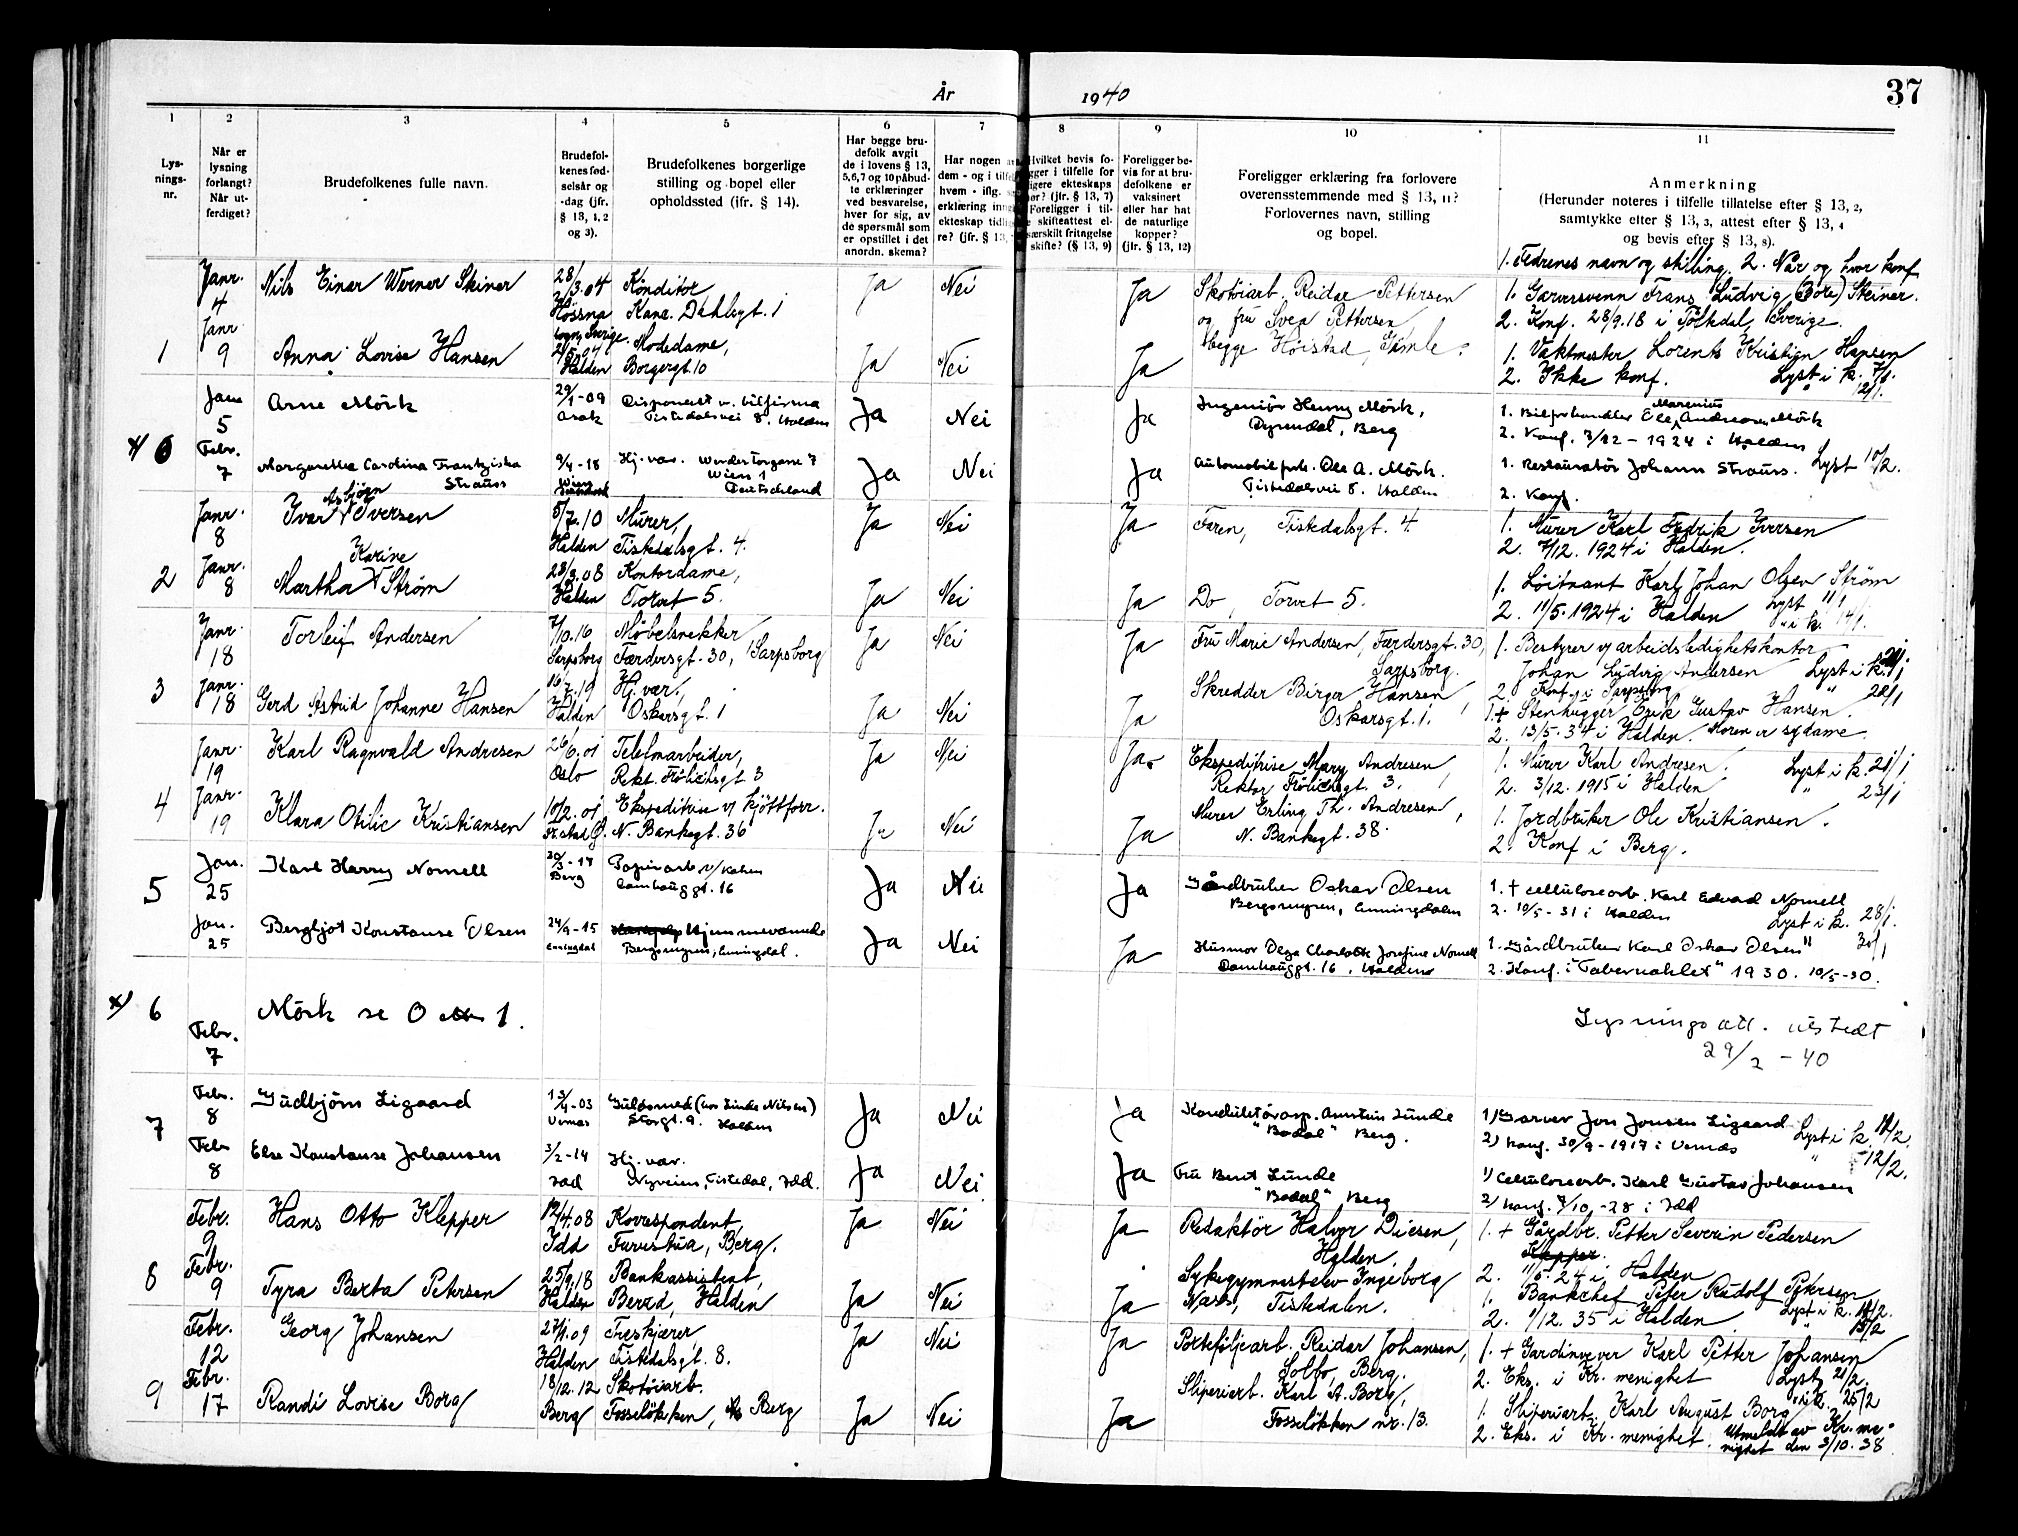 År 1940
37
1 2 3 4 5 6 7 8 9 10 11
Lysnings-nr.
Når er lysning forlangt? Når utferdiget?
Brudefolkenes fulle navn.
Brudefolkenes fødselsår og -dag (jfr. § 13, 1, 2 og 3).
Brudefolkenes borgerlige stilling og bopel eller opholdssted (ifr. § 14).
Har begge brudefolk avgit de i lovens § 13, 5,6,7 og 10 påbudte erklæringer ved besvarelse, hver for sig, av de spørsmål som er opstillet i det anordn. skema?
Har nogen av dem - og i tilfelle hvem - iflg. erklæring inngått ekteskap tidligere? (jfr. § 13,
Hvilket bevis foreligger i tilfelle for tidligere ekteskaps (jfr. § 13, 7) Foreligger i tilfelle skifteattest el. særskilt fritagelse skifte? (§ 13, 9)
Foreligger bevis for at brudefolkene er vaksinert eller har hat de naturlige kopper? (jfr. § 13, 12)
Foreligger erklæring fra forlovere overensstemmende med § 13, 11? Forlovernes navn, stilling og bopel.
Anmerkning
(Herunder noteres i tilfelle tillatelse efter § 13, 2, samtykke efter § 13, 3, attest efter § 13, 4 og bevis efter § 13, 8).
1. Fedrenes navn og stilling. 2. Når og hvor konf.
Janr. 4 Nils Einar Werner Skiner 28/3.04 Konditor Ja Nei Ja Skotøiarb. Reidar Pettersen 1. Garversvenn Frans Ludvig Steiner.
Kane. Dahlsgt. 1 og fru Svea Pettersen, 2. Konf. 28/9.18 i Sverige.
1 Janr 9 Anna Lovise Hansen Halden Modedame, Borgergt. 10 Ja Nei Ja begge Høistad, Gimle. 1. Vaktmester Lorents Kristian Hansen
2. Ikke konf. Lyst i k. 7/1. 12/1.
Jan 5 Arne Mörk 29/1-09 Asak Disponent v. bilfirma Tistedalsvei 8. Halden Ja Nei Ja Ingeniör Henny Mörk, Berg 1. Bilforhandler Ole Marenius Andreas Mörk
2. Konf. 7/12 - 1924 i Halden
x) 6 Febr. 7 Margaretha Carolina Frantziska Strauss 9/4-18 Wien Hj. vær. Werdertorgasse 7 Wien 1 Deutschland Ja Nei Ja Automobilforh. Ole A. Mörk. Tistedalsvei 8. Halden 1. Restauratör Johann Strauss. Lyst 10/2.
2. Konf.
Janr. 8 Ivar Asbjørn Iversen 5/7.10 Halden Murer, Tistedalsgt. 4. Ja Nei Ja Faren, Tistedalsgt. 4. 1. Murer Karl Fredrik Iversen
2. 7/12. 1924 i Halden.
2 Janr. 8 Martha Karine Strøm 28/3.08 Halden Kontordame, Torvet 5. Ja Nei Ja Do, Torvet 5. 1. Løitnant Karl Johan Olsen Strøm
2. 11/5. 1924 i Halden Lyst 11/1 " i k. 14/1.
Janr. 18 Torleif Andersen 7/10.16 Sarpsborg Møbelsnekker Færdersgt. 30, Sarpsborg Ja Nei Ja Fru Marie Andersen, Færdersgt. 30, Sarpsborg. 1. Bestyrer v/ arbeidsledighetskontor
Johan Ludvig Andersen Lyst i k. 21/1
2. Konf. i Sarpsborg " 22/1
3 Janr. 18 Gerd Astrid Johanne Hansen 16/7.19 Halden Hj. vær., Oskarsgt. 1 Ja Nei Ja Skredder Birger Hansen, Oskarsgt. 1. 1. + Stenhugger Erik Gustav Hansen.
2. 13/5. 34 i Halden. Moren er sydame.
Janr. 19 Karl Ragnvald Andresen 26/6.01 Oslo Telefonarbeider, Rekt. Frölichsgt 3 Ja Nei Ja Ekspeditrise Mary Andresen, Rektor Frölichsgt. 3. 1. Murer Karl Andresen. Lyst i k. 21/1
2. 3/12. 1915 i Halden " 23/1
4 Janr. 19 Klara Otilie Kristiansen 10/2.01 Fr.stad Ekspeditrise v/ kjöttforr. N. Bankegt. 36 Ja Nei Ja Murer Erling Th. Andresen, N. Bankegt. 38. 1. Jordbruker Ole Kristiansen.
2. Konf i Berg.
5 Jan. 25 Karl Harry Nomell Berg Papirarb v/ Damhauggt. 16 Ja Nei Ja Gårdbruker Oskar Olsen Enningdalen 1. † Cellulosearb. Karl Edvard Nomell
2. 10/5-31 i Halden Lyst i k. 28/1.
Jan. 25 Bergljot Konstanse Olsen 24/9-15 Enningdal Hjemmeværende Enningdal. Ja Nei Ja Husmor Olga Charlotte Josefine Nomell Damhauggt. 16, Halden 1. Gårdbruker Karl Oskar Olsen " 30/1
2. Konf. i "Tabernaklet" 1930. 10/5-30.
x) 6 Febr. 7 Mörk se 0 1. Lysningsatt. utstedt
29/2 - 40
7 Febr. 8 Gudbjörn Ligaard Gullsmed (hos Linde Nilsen) Storgt. 9. Halden Ja Nei Ja Lunde "Bodal" Berg. 1) Garver Jon Jonsen Ligaard Lyst i k. 11/2.
2) Konf. 30/9-1917 i " 12/2.
Febr 8 Else Konstanse Johansen 3/2-14 Idd Hj. vær. Nyveien, Tistedal, Idd. Ja Nei Ja Fru Berit Lunde "Bodal" Berg 1) Cellulosearb. Karl Gustav Johansen
2) Konf. 7/10 -28 i Idd
Febr. 9 Hans Otto Klepper 12/4.08 Idd Korrespondent, Furustua, Berg. Ja Nei Ja Redaktör Halvor Diesen, Halden. 1. + Gårdbr. Petter Severin Pedersen
Klepper.
2. 11/5. 24 i Halden
8 Febr. 9 Tyra Berta Petersen 25/9.18 Halden Bankassistent, Halden Ja Nei Ja Sykegymnastelev Ingeborg Næss, Tistedalen. 1. Bankchef Peter Rudolf Petersen
2. 1/12. 35 i Halden Lyst i k. 11/2.
Febr. 12 Georg Johansen 27/1.09 Halden Treskjærer Tistedalsgt. 8. Ja Nei Ja Porteföljearb. Reidar Johansen, Solbo, Berg. 1. + Gardinvever Karl Petter Johansen
2. Eks. i Fr. menighet Lyst 21/2.
9 Febr. 17 Randi Lovise Borg 18/12.12 Berg Skotøiarb. Fosseløkken, Berg Ja Nei Ja Sliperiarb. Karl A. Borg, Fosseløkken nr. 13. 1. Sliperiarb. Karl August Borg " i k. 25/2
2. Eks. i Fr. menighet. Utmeldt av Fr. menighet den 3/10. 38